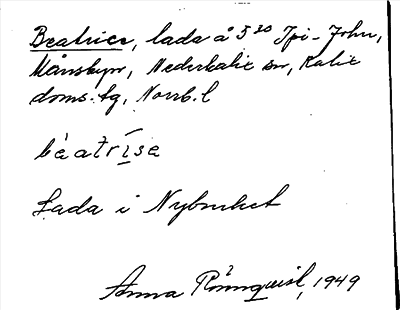 Beatrice, lada å 5²⁰ Jpi-John,
Månsbyn, Nederkalix sn, Kalix
doms.tg, Norrb.l
béatrise
Lada i Nybruket
Anna Rönnqvist, 1949